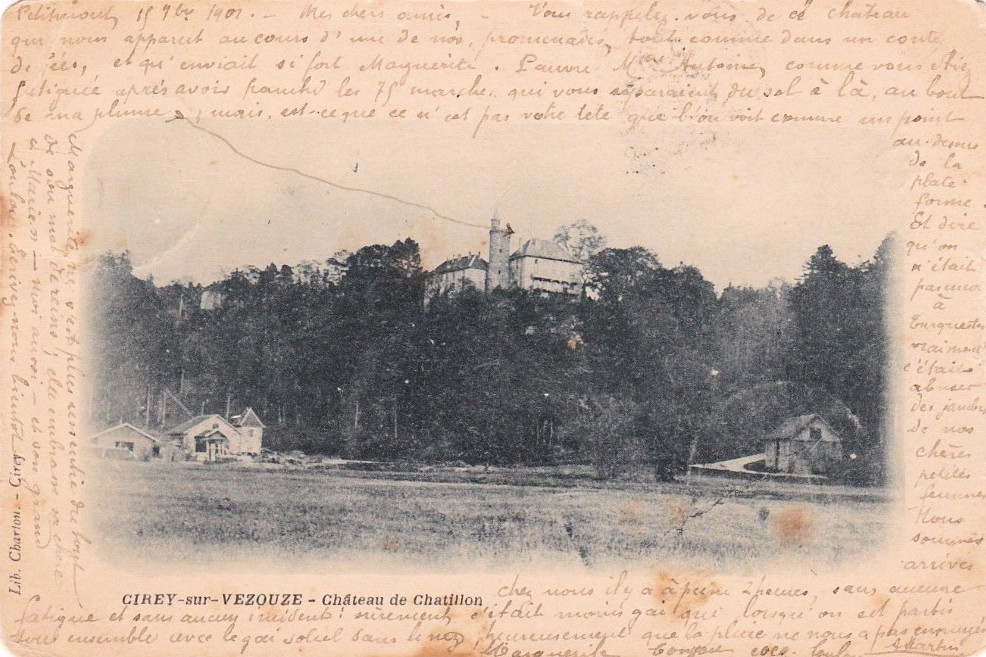 Petitmont 15 7bre 1901. - Mes chers amis, - Vous rappelez-vous de ce château
qui nous apparut au cours d'une de nos promenades, tout comme dans un conte
de fées, et qu'enviait si fort Marguerite. Pauvre Antoine, comme vous étiez
fatiguée après avoir franchi les 75 marches qui vous séparaient du sol à là, au bout
de ma plume, mais, est-ce que ce n'est pas votre tête que l'on voit comme un point
au-dessus
de la
plate
forme.
Et dire
qu'on
n'était
pas
à
Turquestein
vraiment
c'était
abuser
des jambes
de nos
chères
petites
femmes
Nous
sommes
arrivés
chez nous il y a à peine 2 heures, sans aucune
fatigue et sans aucun incident! sûrement c'était moins gai que lorsqu'on est partis
tous ensemble avec le gai soleil sans le nez, heureusement que la pluie ne nous a pas
Marguerite
Martin
Marguerite ne s'est plus sentie du bout
de son de reins; elle embrasse sa chère
et Marien - moi aussi - et son grand
Loulou. Ecrivez-nous bientôt
Lib. Charton - Cirey
CIREY-sur-VEZOUZE - Château de Chatillon